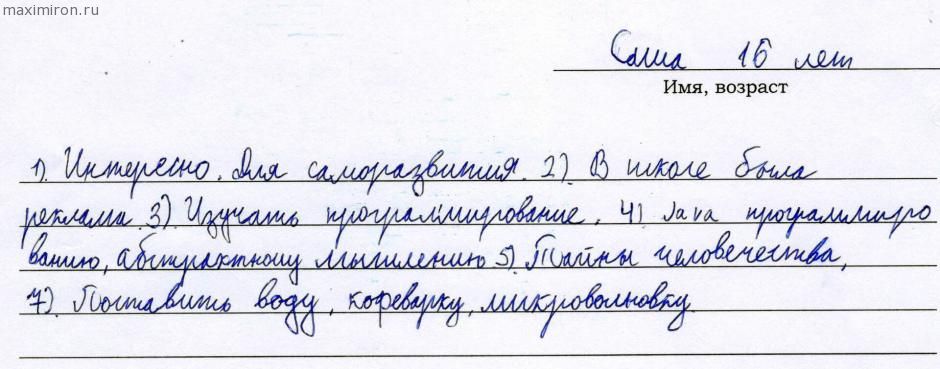 maximiron.ru
Саша 16 лет
Имя, возраст
1). Интересно. Для саморазвития. 2). В школе была
реклама. 3) Изучать программирование. 4) Java програмиро
ванию, абстрактному мышлению 5). Тайны человечества,
7). Поставить воду, кофеварку, микроволновку.